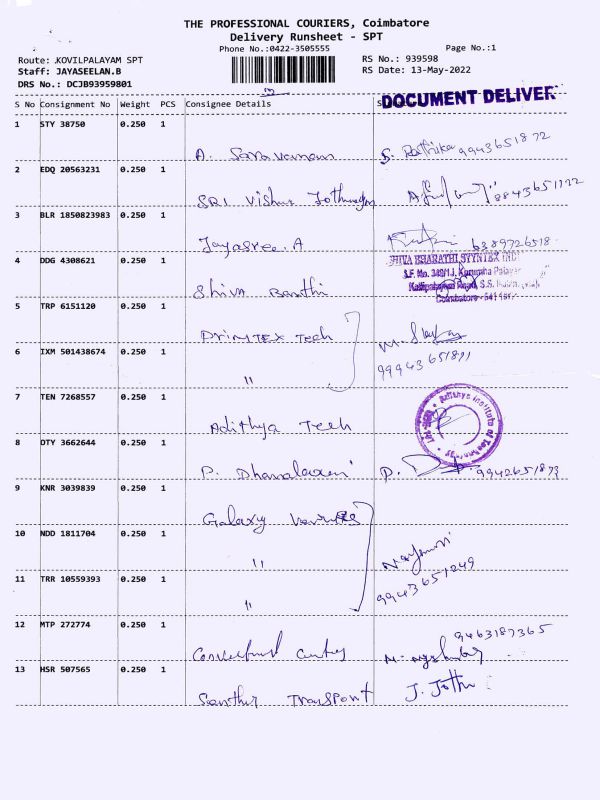 THE PROFESSIONAL COURIERS, Coimbatore
Delivery Runsheet - SPT
Phone No.:0422-3505555
Page No.:1
Route: .KOVILPALAYAM SPT
RS No.: 939598
Staff: JAYASEELAN.B
RS Date: 13-May-2022
DRS No.: DCJB93959801
DOCUMENT DELIVER
S No Consignment No Weight PCS Consignee Details
1 STY 38750 0.250 1
A. Saravanan S. Rathika 9943651872
2 EDQ 20563231 0.250 1
SRI Vishnu 8843651172
3 BLR 1850823983 0.250 1
Jayasree.A 6389726518
4 DDG 4308621 0.250 1
SHIVA BHARATHI SYNTEX INC
S.F. No. 349/1J, Kurumba Palayam
Shiva Barathi
Coimbatore - 641
5 TRP 6151120 0.250 1
Primtex Tech M.
6 IXM 501438674 0.250 1
" 99943651891
7 TEN 7268557 0.250 1
Adithya Institute of Technology
Adithya Tech
8 DTY 3662644 0.250 1
P. Dhanalaxmi P. 9942651873
9 KNR 3039839 0.250 1
Galaxy
10 NDD 1811704 0.250 1
"
11 TRR 10559393 0.250 1
" 9943651249
12 MTP 272774 0.250 1
9463187365
13 HSR 507565 0.250 1
Santhur Transport J. Jothi